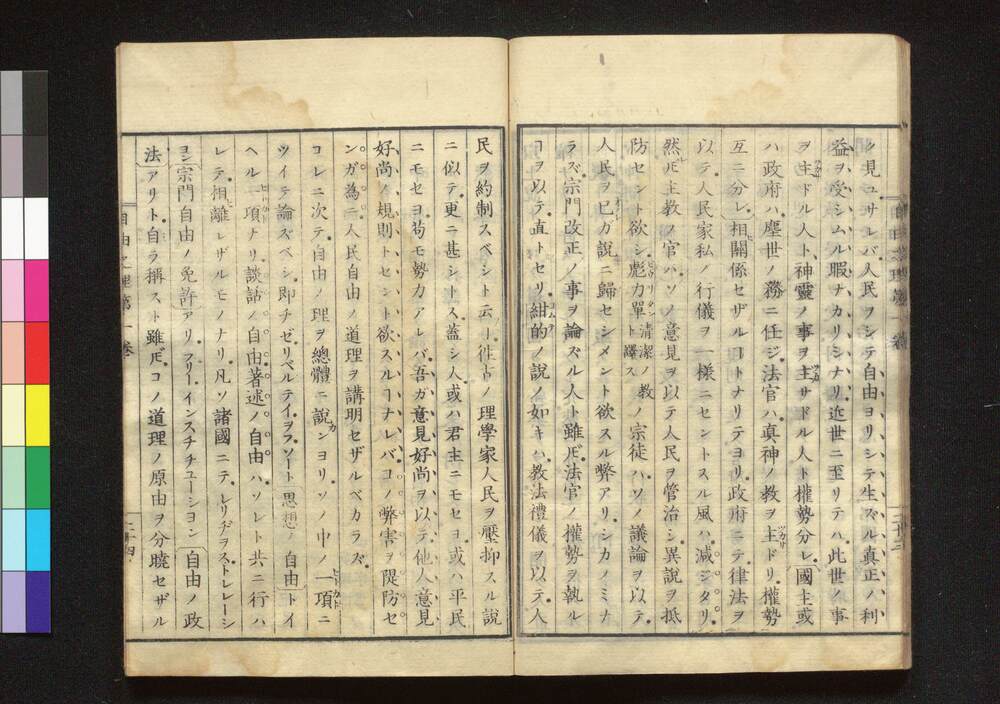 ク見ユサレバ人民ヲシテ自由ヨリシテ生ズル真正ノ利
益ヲ受シムル暇ナカリシナリ近世ニ至リテハ此世ノ事
ヲ主ドル人ト神靈ノ事ヲ主サドル人ト權勢分レ國主或
ハ政府ハ塵世ノ務ニ任ジ法官ハ真神ノ教ヲ主ドリ權勢
互ニ分レ相關係セザルヿトナリテヨリ政府ニテ律法ヲ
以テ人民家私ノ行儀ヲ一様ニセントスル風ハ減ジタリ
然𪜈主教ノ官ハソノ意見ヲ以テ人民ヲ管治シ異説ヲ抵
防セント欲シ彪力單ト譯ス清潔ノ教ノ宗徒ハソノ議論ヲ以テ
人民ヲ已ガ説ニ歸セシメント欲スル弊アリシカノミナ
ラズ宗門改正ノ事ヲ論ズル人ト雖𪜈法官ノ權勢ヲ執ル
ヿヲ以テ直トセリ紺的ノ説ノ如キハ教法禮儀ヲ以テ人
民ヲ約制スベシト云ヿ往古ノ理學家人民ヲ壓抑スル説
ニ似テ更ニ甚シトス蓋シ人或ハ君主ニモセヨ或ハ平民
ニモセヨ苟モ勢力アレバ吾ガ意見好尚ヲ以テ他人意見
好尚ノ規則トセント欲スルヿナレバコノ弊害ヲ隄防セ
ンガ為ニ人民自由ノ道理ヲ講明セザルベカラズ
コレニ次テ自由ノ理ヲ總體ニ説ンヨリソノ中ノ一項ニ
ツイテ論ズベシ即チゼリベルテイヲフソート思想ノ自由トイ
ヘル一項ナリ談話ノ自由著述ノ自由ハソレト共ニ行ハ
レテ相離レザルモノナリ凡ソ諸國ニテレリヂヲストレレーシ
ヨン宗門自由ノ免許アリフリーインスチチユーシヨン自由ノ政
法アリト自ラ稱スト雖𪜈コノ道理ノ原由ヲ分曉セザル
自由之理第一卷
二十四